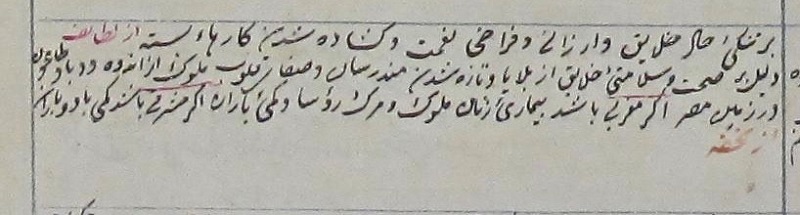 بر تنکی حال خلایق و ارزانی و فراخی نعمت و کشاده شدن کارهاء بسته از لطایف
دلیل بر صحت و سلامتی خلایق از بلایا و تازه شدن مندرسان و صفاء قلوب ملوک از اندوه و
در زمین مصر اکر مغربی باشد بیماری زنان ملوک و مرک رؤسا و کمی باران اکر مشرقی باشد کمی باد و باران
از تحفه